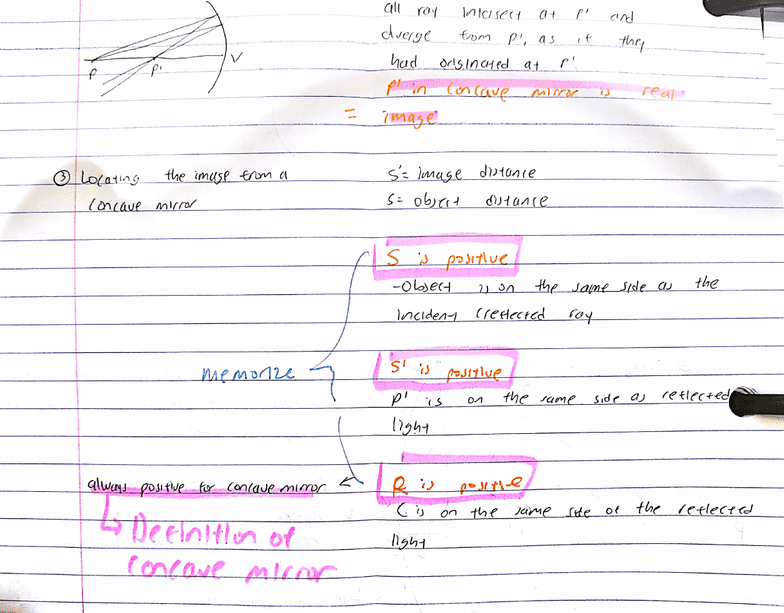 all ray intersect at P' and
diverge from P', as if they
had originated at P'
P' in concave mirror is real
= image
P P' V
③ Locating the image from a
concave mirror
S' = image distance
S = object distance
S is positive
- Object is on the same side as the
incident (reflected ray
memorize
S' is positive
P' is on the same side as reflected
light
always positive for concave mirror ← R is positive
C is on the same side of the reflected
light
↳ Definition of
concave mirror